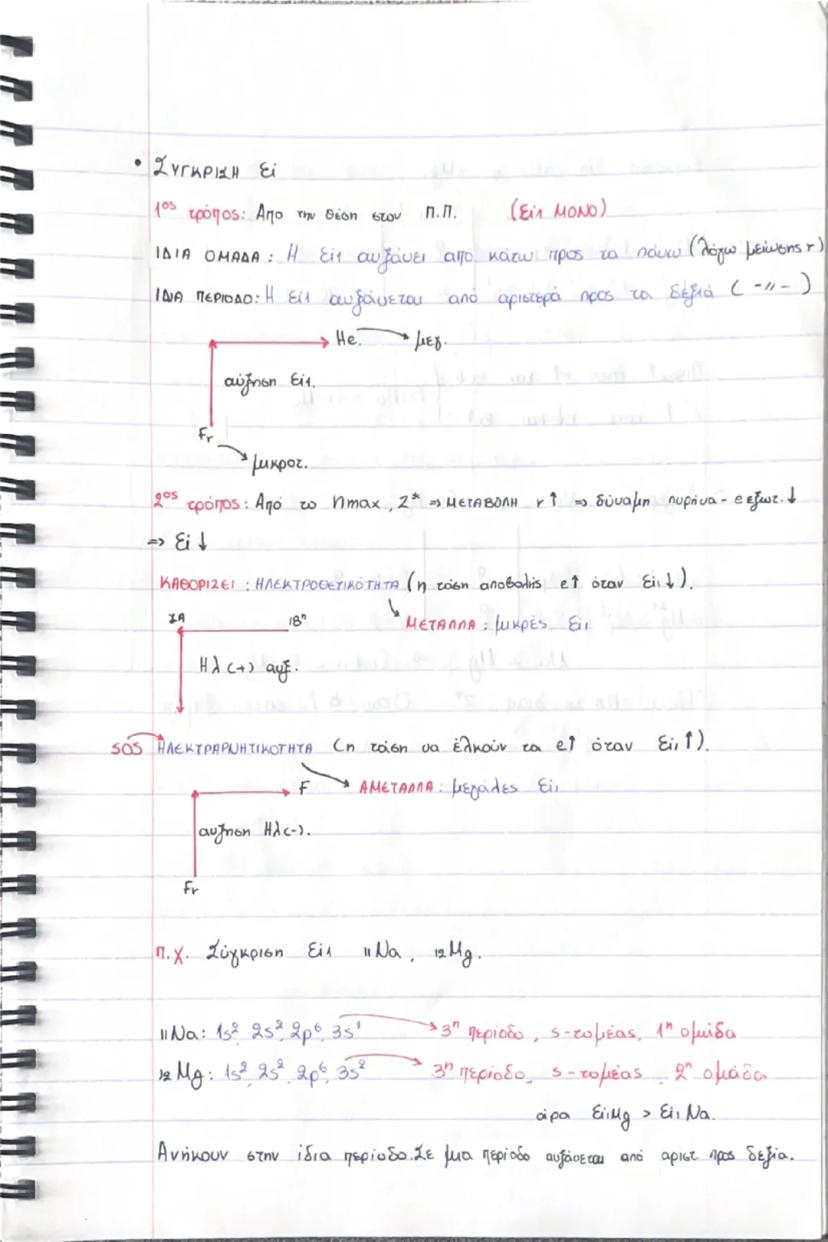 • ΣΥΓΚΡΙΣΗ Ει
1ος τρόπος: Απο την θέση στον Π.Π. (Ει1 ΜΟΝΟ)
ΙΔΙΑ ΟΜΑΔΑ: Η Ει1 αυξάνει από κάτω προς τα πάνω (λόγω μείωσης r)
ΙΔΙΑ ΠΕΡΙΟΔΟ: Η Ει1 αυξάνεται από αριστερά προς τα δεξιά (-〃-)
He → μεγ.
αύξηση Ει1.
Fr
μικροτ.
2ος τρόπος: Από το nmax, Z* ⇒ ΜΕΤΑΒΟΛΗ r↑ ⇒ δύναμη πυρήνα - e εξωτ.↓
⇒ Ει↓
ΚΑΘΟΡΙΖΕΙ: ΗΛΕΚΤΡΟΘΕΤΙΚΟΤΗΤΑ (η τάση αποβολής e↑ όταν Ει1↓).
ΙΑ 18η ΜΕΤΑΛΛΑ: μικρές Ει1
Ηλ(+) αυξ.
SOS ΗΛΕΚΤΡΑΡΝΗΤΙΚΟΤΗΤΑ (η τάση να έλκουν τα e↑ όταν Ει1↑).
F ΑΜΕΤΑΛΛΑ: μεγάλες Ει1
αυξηση Ηλ(-).
Fr
π.χ. Σύγκριση Ει1 11Na, 12Mg.
11Na: 1s² 2s² 2p⁶ 3s¹ → 3η περίοδο, s-τομέας, 1η ομάδα
12Mg: 1s² 2s² 2p⁶ 3s² → 3η περίοδο, s-τομέας, 2η ομάδα
άρα Ει1Mg > Ει1Na.
Ανήκουν στην ίδια περίοδο. Σε μια περίοδο αυξάνεται από αριστ προς δεξία.